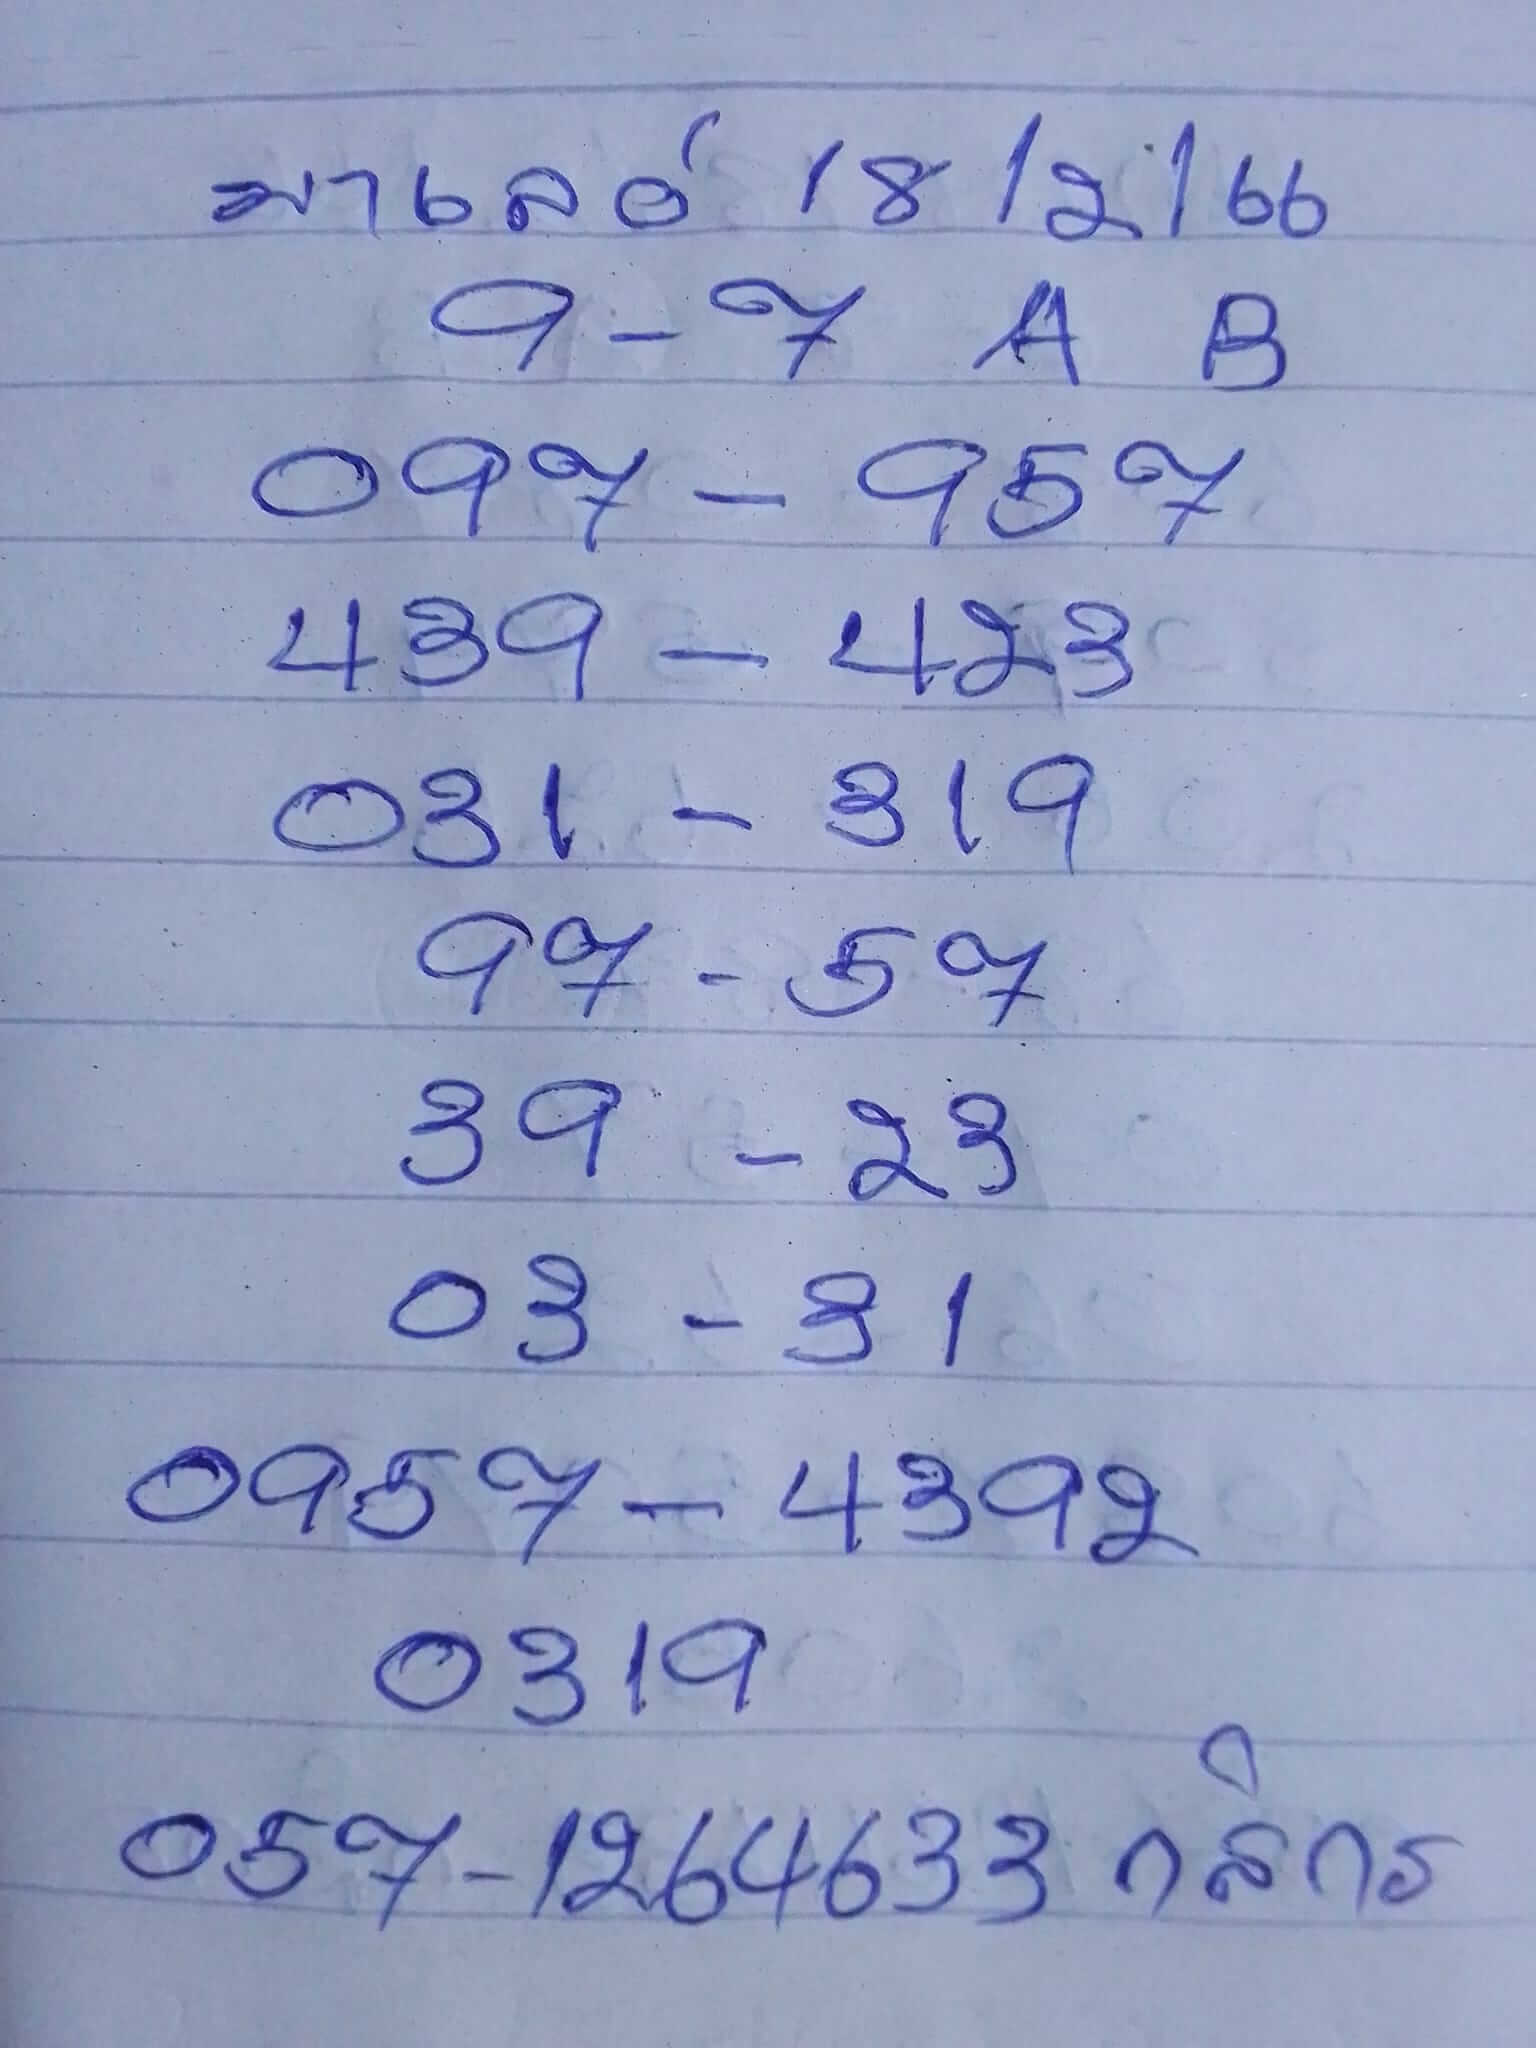 มาเลย์ 18/2/66
9-7 A B
097-957
439-423
031-319
97-57
39-23
03-31
0957-4392
0319
057-1264633 กสิกร